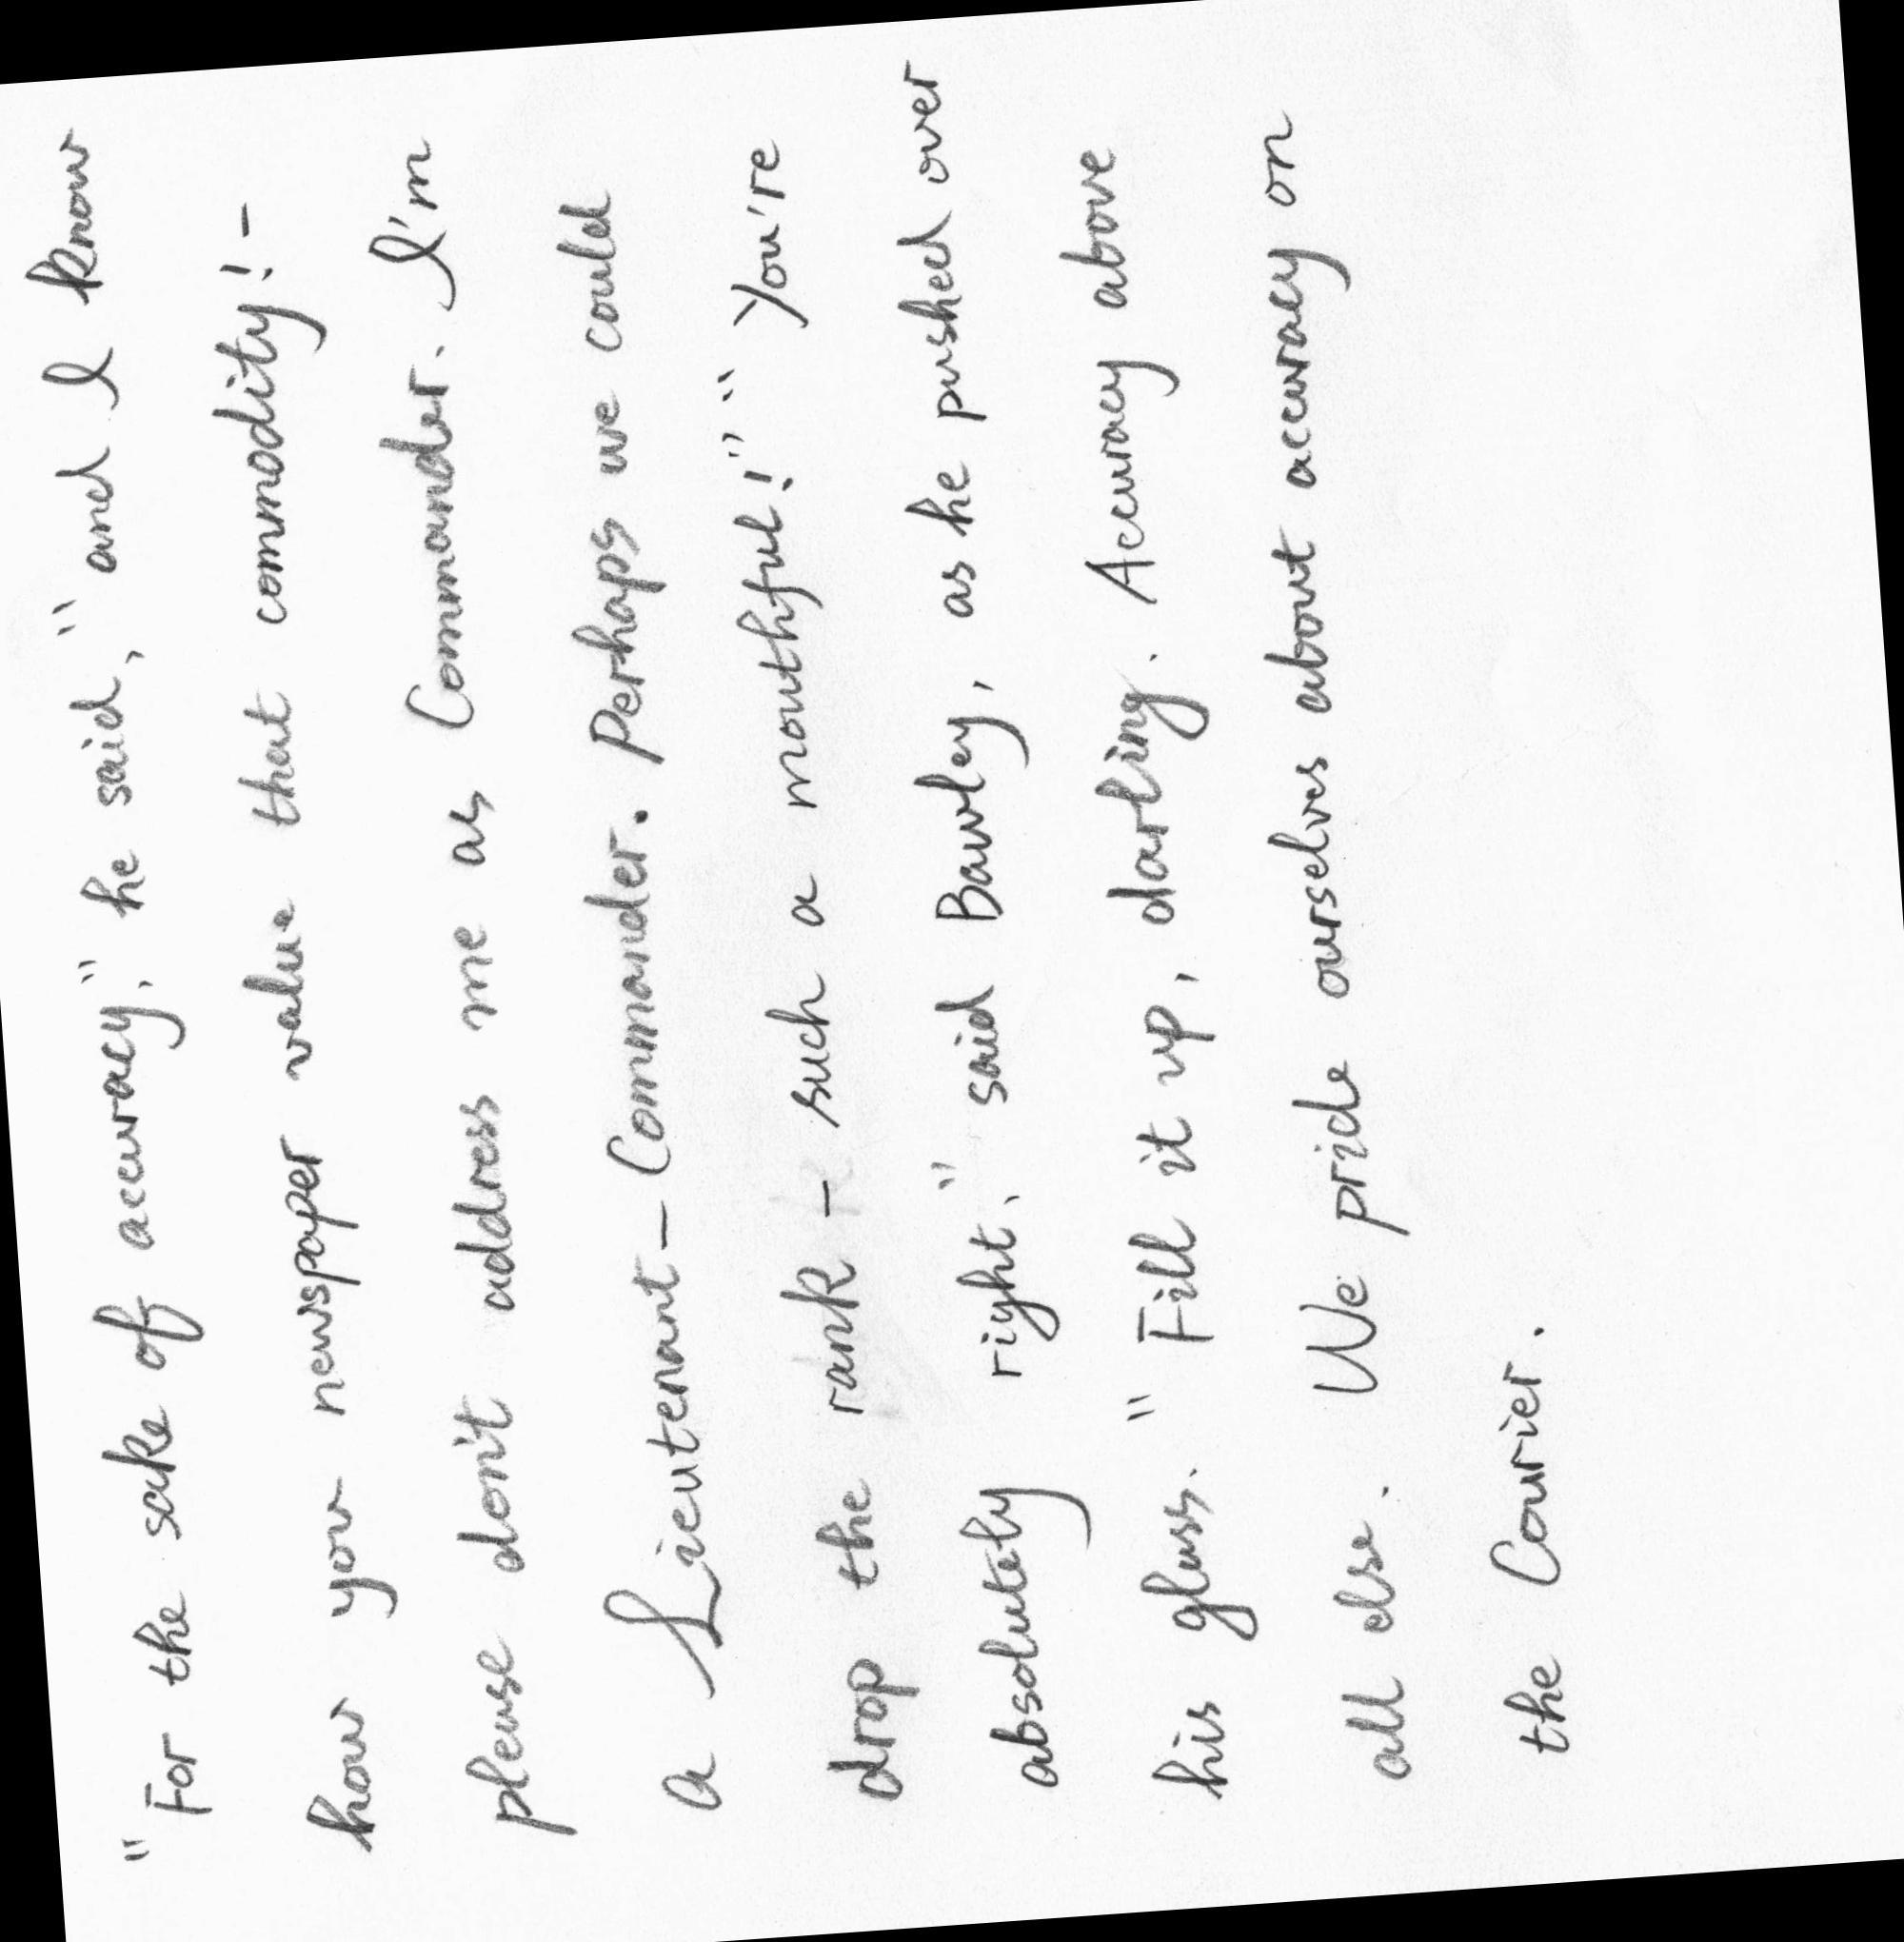 "For the sake of accuracy," he said, "and I know
how you newspaper value that commodity! -
please don't address me as Commander. I'm
a Lieutenant-Commander. Perhaps we could
drop the rank - such a mouthful!", "You're
absolutely right," said Bawley, as he pushed over
his glass. "Fill it up, darling. Accuracy above
all else. We pride ourselves about accuracy on
the Courier.